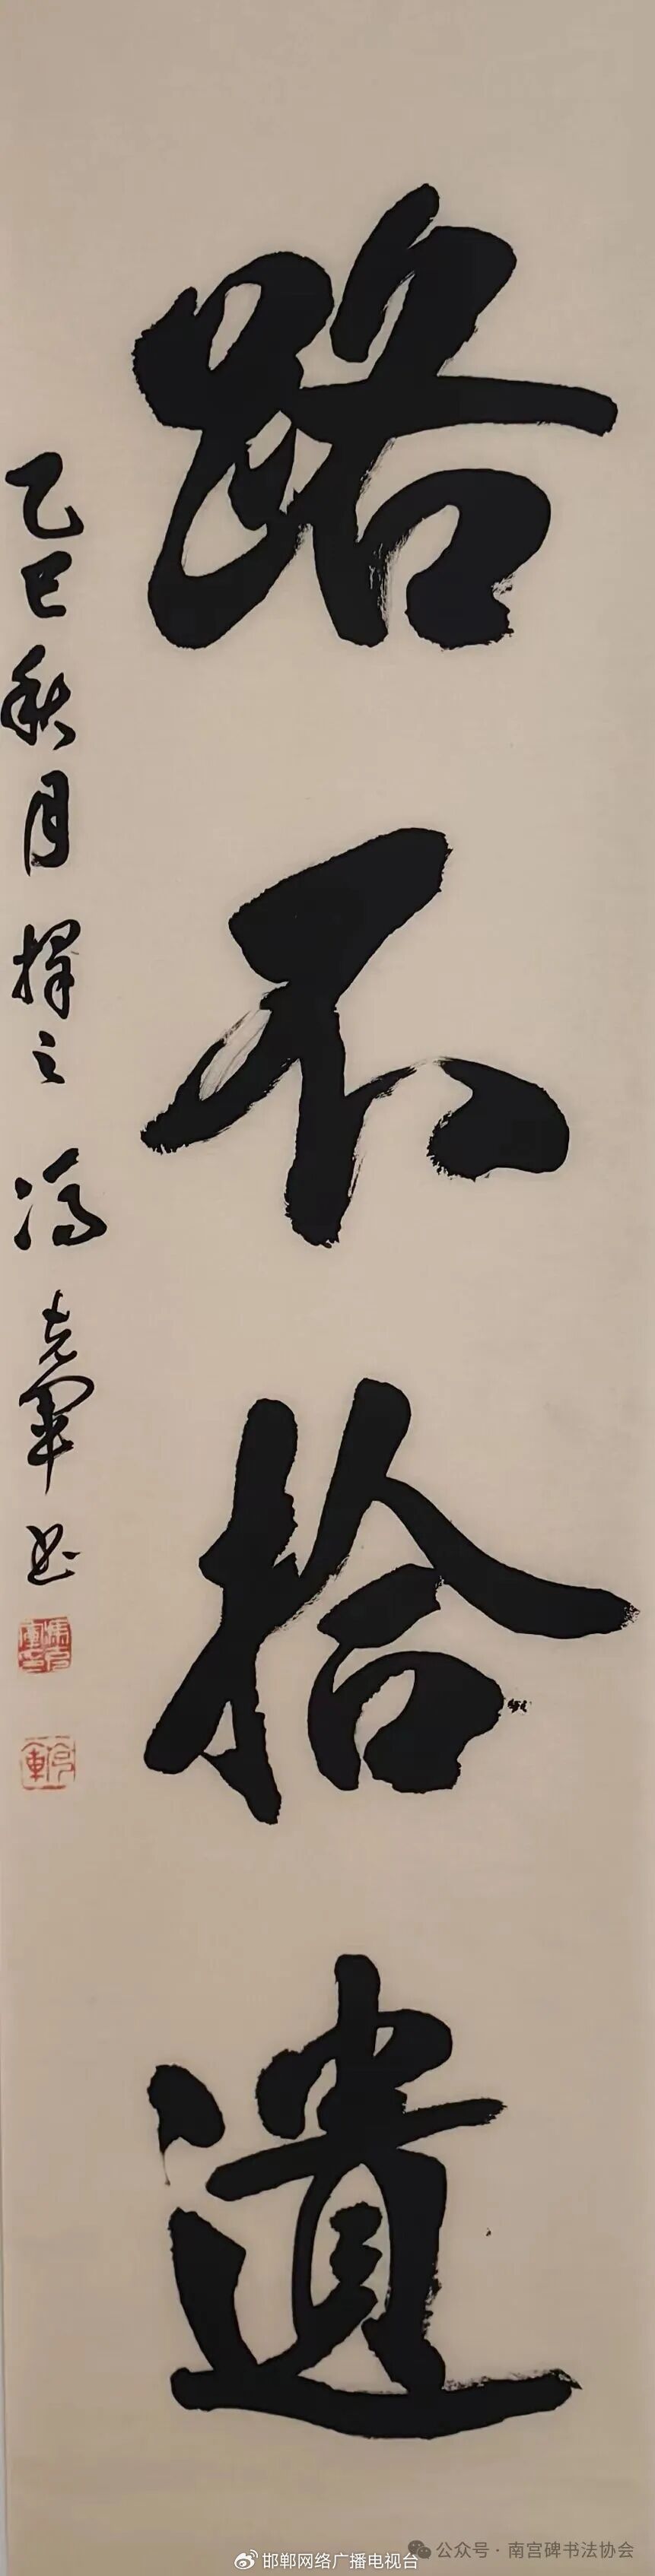 路不拾遗
乙巳秋月择之冯克军书
邯郸网络广播电视台
公众号·南宫碑书法协会